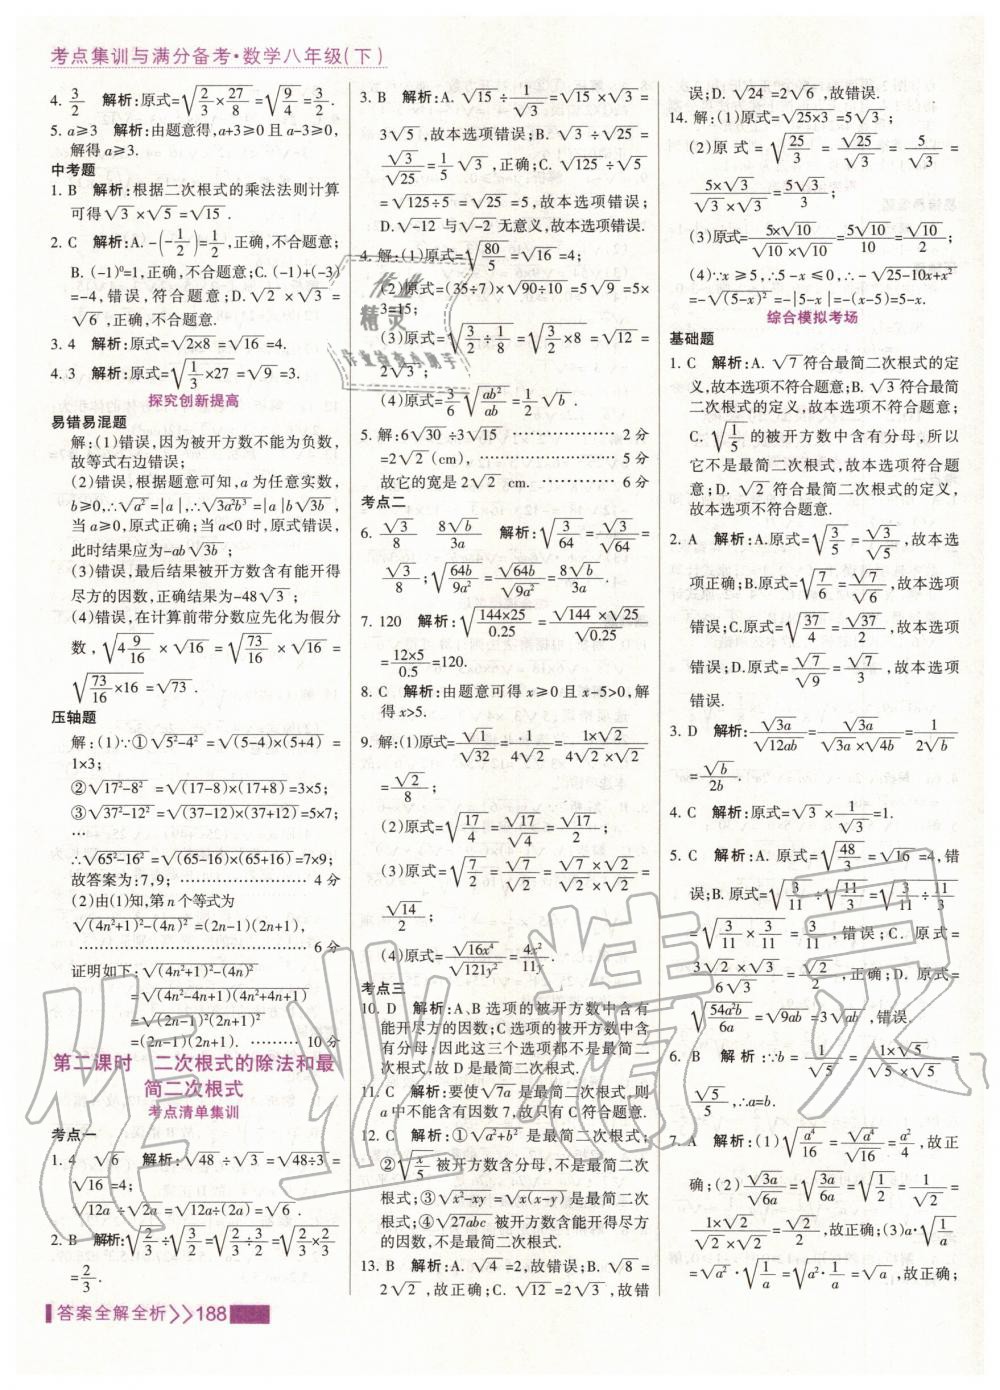 考点集训与满分备考·数学八年级(下)
4. 3/2 解析:原式=√(2/3×27/8)=√(9/4)=3/2.
5. a≥3 解析:由题意得,a+3≥0且a-3≥0,
解得a≥3.
中考题
1. B 解析:根据二次根式的乘法法则计算
可得√3×√5=√15.
2. C 解析:A. -(-1/2)=1/2,正确,不合题意;
B. (-1)⁰=1,正确,不合题意;C. (-1)+(-3)
=-4,错误,符合题意;D. √2×√3=
√6,正确,不合题意.
3. 4 解析:原式=√(2×8)=√16=4.
4. 3 解析:原式=√(1/3×27)=√9=3.
探究创新提高
易错易混题
解:(1)错误,因为被开方数不能为负数,
故等式右边错误;
(2)错误,根据题意可知,a为任意实数,
b≥0,∴√a²=|a|,∴√(3a²b³)=|a|b√(3b),
当a≥0,原式正确;当a<0时,原式错误,
此时结果应为-ab√(3b);
(3)错误,最后结果被开方数含有能开得
尽方的因数,正确结果为-48√3;
(4)错误,在计算前带分数应先化为假分
数,√(4 9/16)×√16=√(73/16)×√16=
√(73/16×16)=√73.
压轴题
解:(1)∵①√(5²-4²)=√((5-4)×(5+4))=
1×3;
②√(17²-8²)=√((17-8)×(17+8))=3×5;
③√(37²-12²)=√((37-12)×(37+12))=5×7;
…
∴√(65²-16²)=√((65-16)×(65+16))=7×9;
故答案为:7,9;…………………… 4分
(2)由(1)知,第n个等式为
√((4n²+1)²-(4n)²)=(2n-1)(2n+1),
………………………………… 6分
证明如下:√((4n²+1)²-(4n)²)
=√((4n²-4n+1)(4n²+4n+1))
=√((2n-1)²(2n+1)²)
=(2n-1)(2n+1).………… 10分
第二课时 二次根式的除法和最
简二次根式
考点清单集训
考点一
1. 4 √6 解析:√48÷√3=√(48÷3)=
√16=4;
√(12a)÷√(2a)=√(12a÷(2a))=√6.
2. B 解析:√(2/3)÷√(3/2)=√(2/3÷3/2)=√(2/3×2/3)
=2/3.
3. B 解析:A. √15÷1/√3=√15×√3=
3√5,故本选项错误;B. √3÷√25=
√3/√25=1/5√3,正确;C. √125÷√5
=√(125÷5)=√25=5,故本选项错误;
D. √-12与√-2无意义,故本选项错误.
4. 解:(1)原式=√(80/5)=√16=4;
(2)原式=(35÷7)×√(90÷10)=5√9=5×
3=15;
(3)原式=√(3/2÷1/8)=√(3/2×8)=√12=
2√3;
(4)原式=3/6√(ab²/ab)=1/2√b.
5. 解:6√30÷3√15……………… 2分
=2√2(cm),…………………… 5分
故它的宽是2√2 cm.………… 6分
考点二
6. √3/8 8√b/3a 解析:√(3/64)=√3/√64=
√3/8;√(64b/9a²)=√(64b)/√(9a²)=8√b/3a.
7. 120 解析:√(144×25/0.25)=√144×√25/√0.25
=12×5/0.5=120.
8. C 解析:由题意可得x≥0且x-5>0,解
得x>5.
9. 解:(1)原式=√1/√32=1/4√2=1×√2/4√2×√2
=√2/8;
(2)原式=√(17/4)=√17/√4=√17/2;
(3)原式=√(7/2)=√7/√2=√7×√2/√2×√2=
√14/2;
(4)原式=√(16x⁴)/√(121y²)=4x²/11y.
考点三
10. D 解析:A、B选项的被开方数中含有
能开尽方的因数;C选项的被开方数中含
有分母;因此这三个选项都不是最简二
次根式,故D是最简二次根式.
11. C 解析:要使√(7a)是最简二次根式,则
a中不能含有因数7,故只有C符合题意.
12. C 解析:①√(a²+b²)是最简二次根式;
②√(x/5)被开方数含分母,不是最简二次
根式;③√(x²-xy)=√(x(x-y))是最简二次
根式;④√(27abc)被开方数含能开得尽方
的因数,不是最简二次根式.
13. B 解析:A. √4=2,故错误;B. √8=
2√2,正确;C. √12=2√3,故错
误;D. √24=2√6,故错误.
14. 解:(1)原式=√(25×3)=5√3;
(2)原式=√(25/3)=√25/√3=5/√3=
5×√3/√3×√3=5√3/3;
(3)原式=5×√10/√10×√10=5√10/10=√10/2;
(4)∵x≥5,∴5-x≤0,∴-√(25-10x+x²)
=-√((5-x)²)=-|5-x|=-(x-5)=5-x.
综合模拟考场
基础题
1. C 解析:A. √7符合最简二次根式的定
义,故本选项不符合题意;B. √3符合最简
二次根式的定义,故本选项不符合题意;
C. √(1/5)的被开方数中含有分母,所以
它不是最简二次根式,故本选项符合题
意;D. √2符合最简二次根式的定义,
故本选项不符合题意.
2. A 解析:A.原式=√(3/5)=√3/√5,故本选
项正确;B.原式=√(7/6)=√7/√6,故本选项
错误;C.原式=√(37/4)=√37/2,故本选项
错误;D.原式=√7/√9=√7/3,故本选项
错误.
3. D 解析:√(3a)/√(12ab)=√(3a)/√(3a)×√(4b)=1/2√b
=√b/2b.
4. C 解析:原式=√3×1/√3=1.
5. C 解析:A. 原式=√(48/3)=√16=4,错
误;B. 原式=√(3/11)÷√(11/3)=√(3/11÷11/3)
=√(3/11×3/11)=3/11,错误;C. 原式=
3√2×√3/6√3=√2/2,正确;D. 原式=
√(54a²b/6a)=√(9ab)=3√(ab),错误.
6. B 解析:∵b=1/√5=1×√5/√5×√5=
√5/5,∴a=b.
7. A 解析:(1)√(a⁴/16)=√a⁴/√16=a²/4,故正
确;(2)√(3a)/√(6a)=√(3a/6a)=√(1/2)=1/√2=
1×√2/√2×√2=√2/2,故正确;(3)a·√(1/a)
=√a²·√(1/a)=√(a²·1/a)=√a,故正确.
答案全解全析>>188
作业精灵